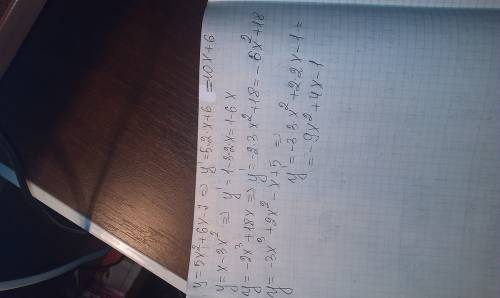 y=5x²+6x-7 ⇒ y'=5·2·x+6 =10x+6
y=x-3x² ⇒ y'=1-3·2x=1-6x
y=-2x³+18x ⇒ y'=-2·3·x²+18=-6x²+18
y=-3x³+2x²-x+5 ⇒
y'=-3·3x²+2·2x-1=
=-9x²+4x-1